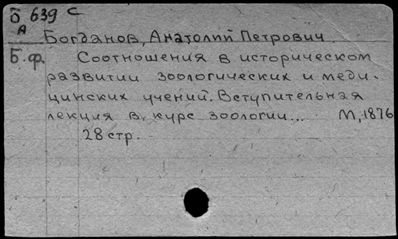 Б 639 С
А
Богданов, Анатолий Петрович.
Б.ф. Соотношения в историческом
развитии зоологических и меди-
цинских учений. Вступительная
лекция в курс зоологии... М, 1876
28 стр.